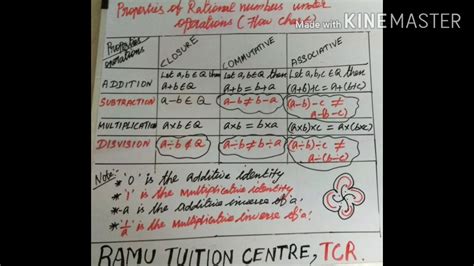 Properties of Rational numbers under
operations (Flow chart)
Made with KINEMASTER
Properties
operations
CLOSURE
COMMUTATIVE
ASSOCIATIVE
ADDITION
Let a,b∈Q then
a+b∈Q
Let a,b∈Q then
a+b = b+a
Let a,b,c ∈ Q then
(a+b)+c = a+(b+c)
SUBTRACTION
a-b∈Q
a-b ≠ b-a
(a-b)-c ≠
a-(b-c)
MULTIPLICATION
a×b∈Q
a×b = b×a
(a×b)×c = a×(b×c)
DISVISION
a÷b∉Q
a÷b ≠ b÷a
(a÷b)÷c ≠
a÷(b÷c)
Note:
* '0' is the additive identity
* '1' is the multiplicative identity
* -a is the additive inverse of 'a'
* 1/a is the multiplicative inverse of 'a'
RAMU TUITION CENTRE, TCR.